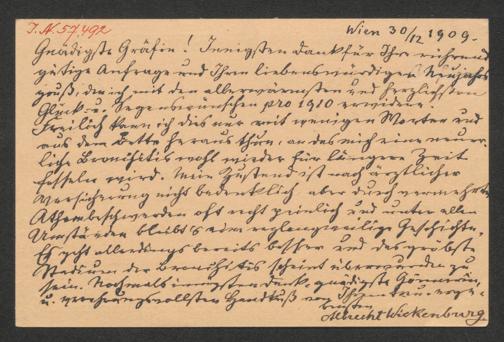 I.N. 57.492
Wien 30/12 1909.
Gnädigste Gräfin! Innigsten Dank für Ihre rührend
gütige Anfrage und Ihren liebenswürdigen Neujahrs
gruß, den ich mit den allerwärmsten und herzlichsten
Glück u. Segenswünschen pro 1910 erwidere.
Freilich kann ich dies nur mit wenigen Worten und
aus dem Bette heraus thun, an das mich eine neuer-
liche Bronchitis wohl wieder für längere Zeit
fesseln wird. Mein Zustand ist nach ärztlicher
Versicherung nicht bedenklich aber durch vermehrte
Athembeschwerden oft recht peinlich und unter allen
Umständen bleibt's eine langweilige Geschichte.
Es geht allerdings bereits besser und das gröbste
Stadium der Bronchitis scheint überwunden zu
sein. Nochmals innigsten Dank, gnädigste Gönnerin,
u. verehrungsvollsten Handkuß von Ihrem treu erge-
bensten
Albrecht Wickenburg.